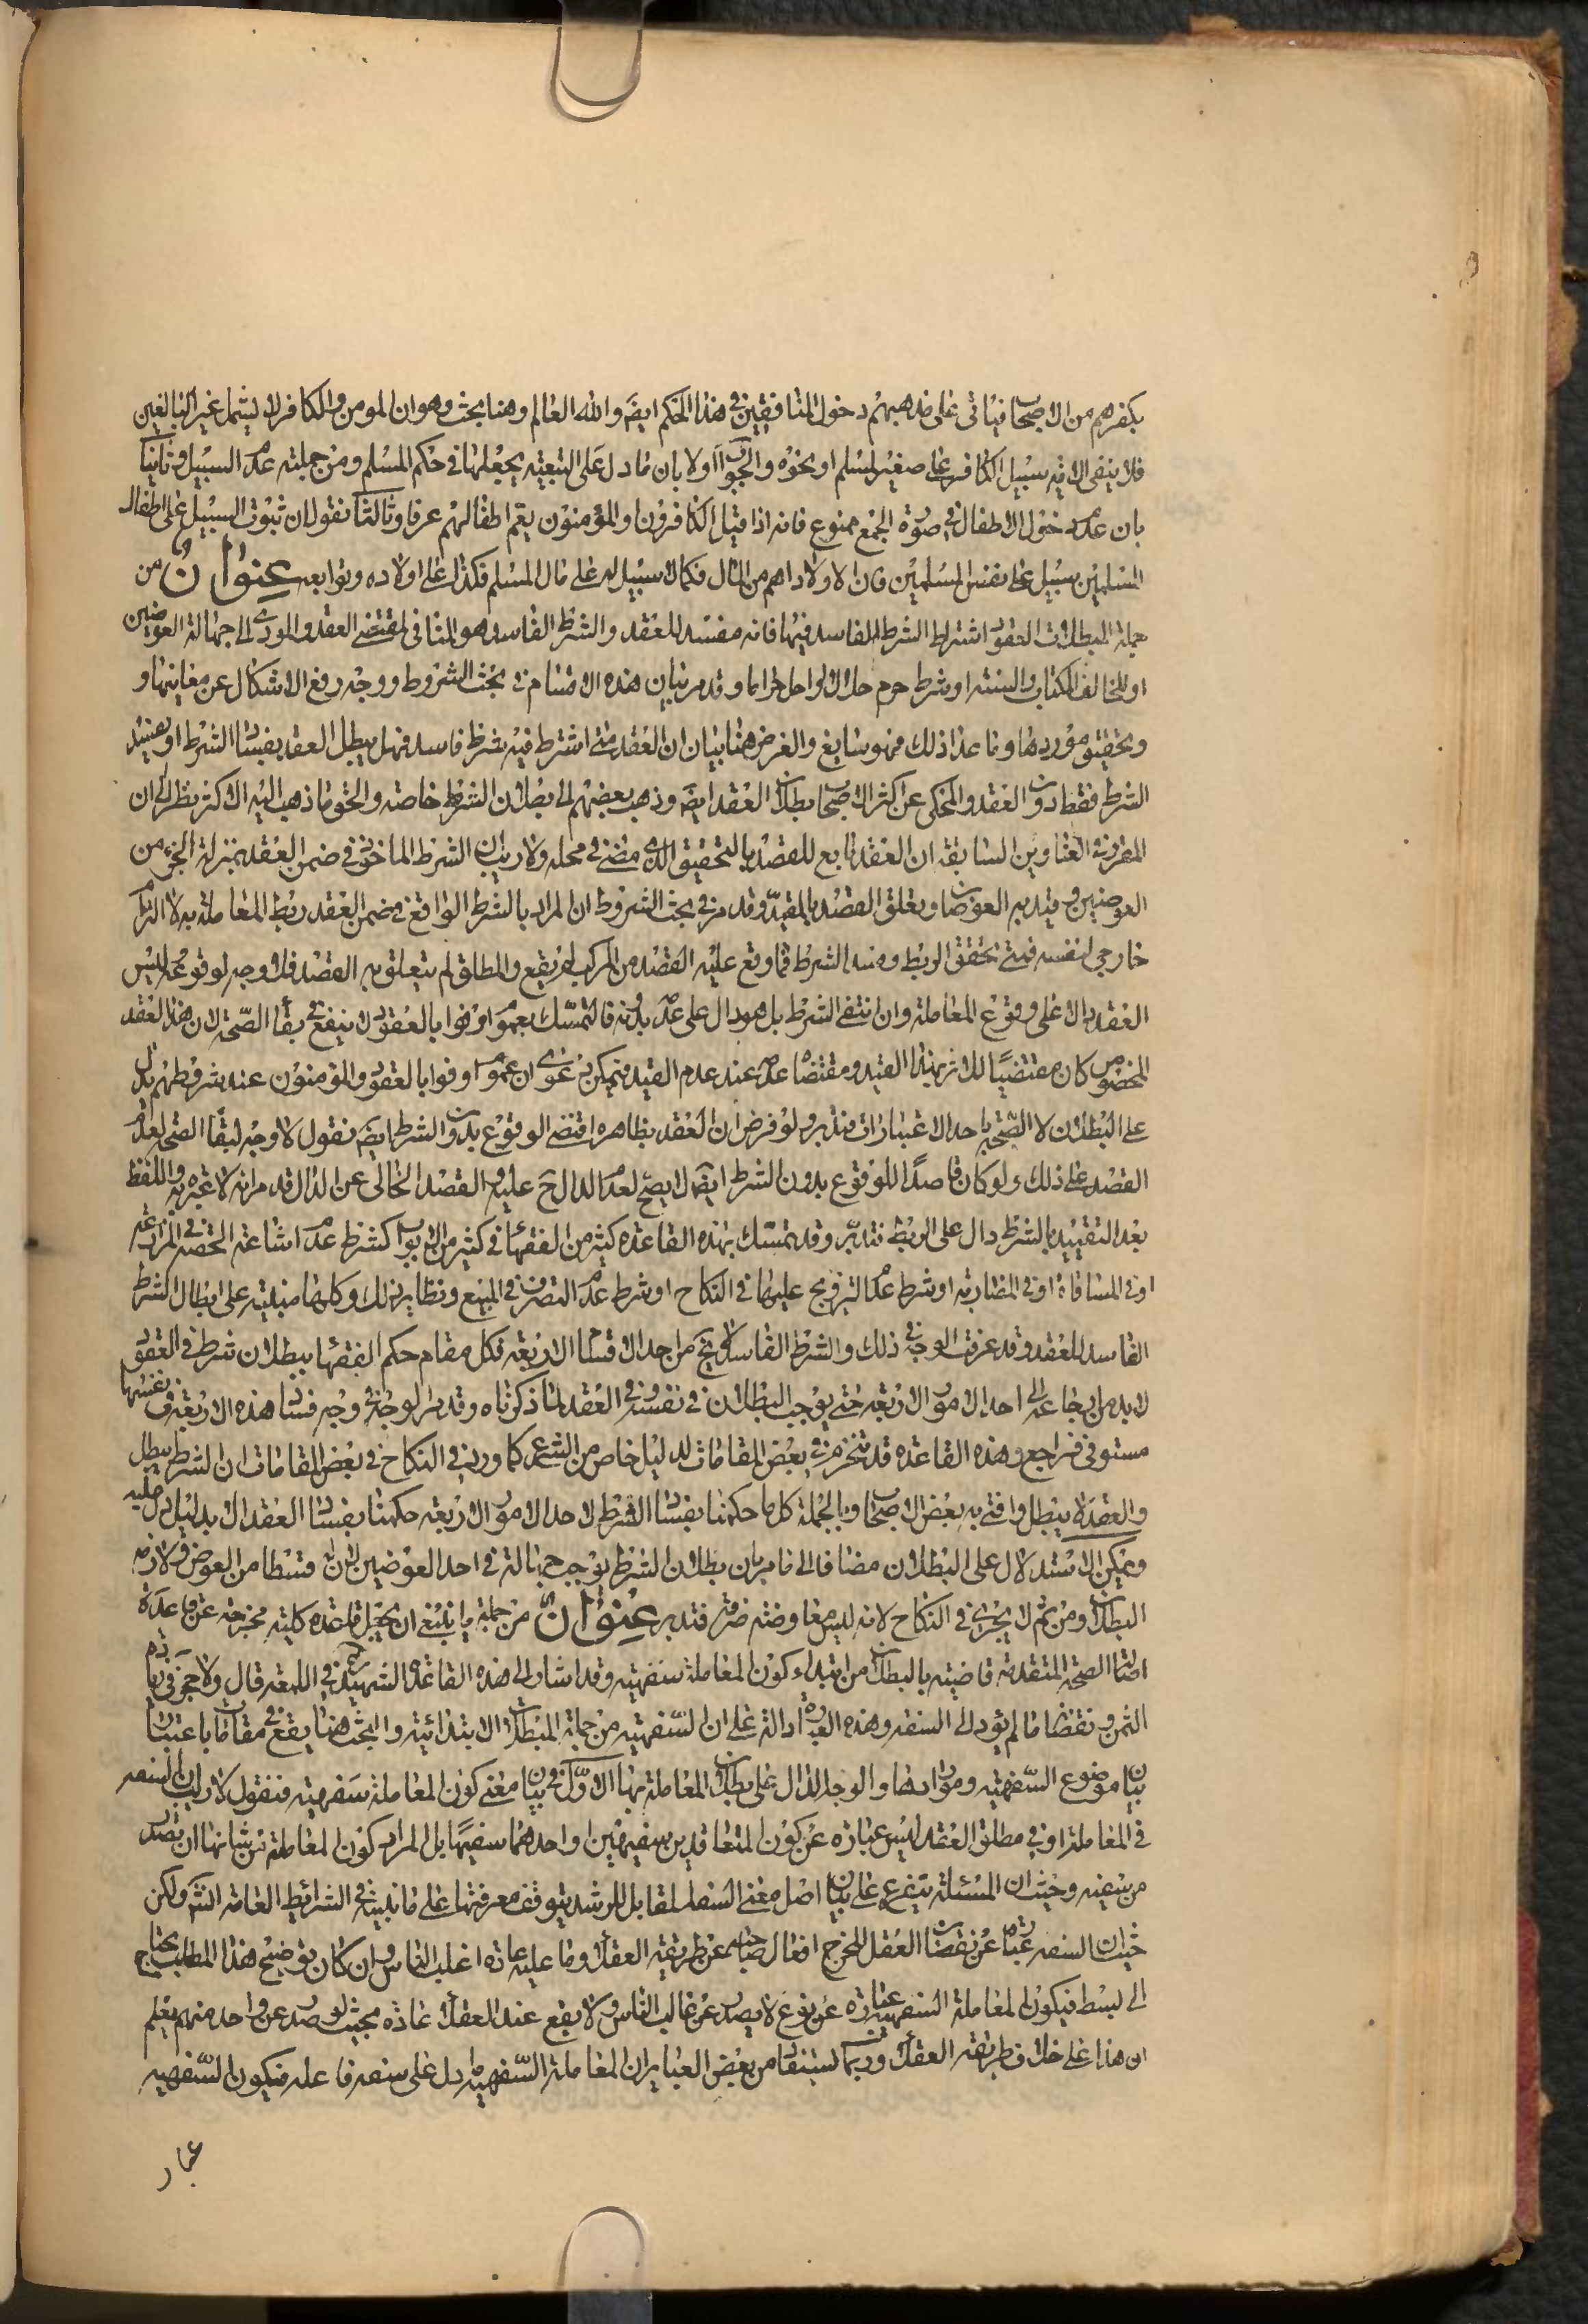 بكفرهم من الاصحاب فيأتي على مذهبهم دخول المنافقين في هذا الحكم ايضا والله العالم وهنا بحث وهو ان المومن والكافر لا يشمل غير البالغين
فلا ينفي الاية سبيل الكافر على صغير لمسلم او نحوه والجواب اولا بان ما دل على التبعية يجعلها في حكم المسلم ومن جملته عدم السبيل وثانيا
بان عدم دخول الاطفال في صورة الجمع ممنوع فانه اذا قيل الكافرون والمؤمنون يعم اطفالهم عرفا وثالثا نقول ان ثبوت السبيل على اطفال
المسلمين سبيل على نفس المسلمين فان الاولاد اهم من المال فكما لا سبيل له على مال المسلم فكذلك على اولاده وتوابعه عنوان من
جملة المبطلات للعقود اشتراط الشرط الفاسد فيها فانه مفسد للعقد والشرط الفاسد هو المنافي لمقتضى العقد والمودي الى جهالة العوضين
او المخالف للكتاب والسنة او شرط حرم حلالا او احل حراما وقد مر بيان هذه الاقسام في بحث الشروط ووجه رفع الاشكال عن معانيها و
وتحقيق مواردها وما عدا ذلك فهو سايغ والغرض هنا بيان ان العقد متى اشترط فيه شرط فاسد فهل يبطل العقد بفساد الشرط او يفسد
الشرط فقط دون العقد والمحكي عن اكثر الاصحاب بطلان العقد ايضا وذهب بعضهم الى بطلان الشرط خاصة والحق ما ذهب اليه الاكثر نظرا الى ان
المقرر في العناوين السابقة ان العقد تابع للقصد بالتحقيق الذي مضى في محله ولا ريب ان الشرط الماخوذ في ضمن العقد بمنزلة الجزء من
العوضين وقيد به العوضات وتعلق القصد بالمقيد وقد مر في بحث الشروط ان المراد بالشرط الواقع في ضمن العقد ربط المعاملة به لا التزام
خارجي لنفسه فمتى تحقق الربط وفسد الشرط فما وقع عليه القصد من المركب لم يقع والمطلق لم يتعلق به القصد فلا وجه لوقوعه وليس
العقد دالا على وقوع المعاملة وان انتفى الشرط بل هو دال على عدمه بدونه فالتمسك بعموم اوفوا بالعقود لا ينفع في بقاء الصحة لان هذا العقد
المخصوص كان مقتضيا للاثر بهذا القيد ومقتضاه عدمه عند عدم القيد فيمكن دعوى ان عموم اوفوا بالعقود والمؤمنون عند شروطهم يدل
على البطلان لا الصحة باحد الاعتبارات فتدبر ولو فرض ان العقد بظاهره اقتضى الوقوع بدون الشرط ايضا فنقول لا وجه لبقاء الصحة لعدم
القصد على ذلك ولو كان قاصدا للوقوع بدون الشرط ايضا لا يصح لعدم الدال ح عليه والقصد الخالي عن الدال قد مر انه لا عبرة به واللفظ
بعد التقييد بالشرط دال على الربط فتدبر وقد تمسك بهذه القاعدة كثير من الفقهاء في كثير من الابواب كشرط عدم اشاعة الحصة في المزارعة
او في المساقاة او في المضاربة او شرط عدم التزويج عليها في النكاح او شرط عدم التصرف في المبيع ونظاير ذلك وكلها مبنية على ابطال الشرط
الفاسد للعقد وقد عرفت الوجه في ذلك والشرط الفاسد لا يخرج من احد الاقسام الاربعة فكل مقام حكم الفقهاء ببطلان شرط في العقود
لابد من ارجاعه الى احد الامور الاربعة حتى يوجب البطلان في نفسه وفي العقد لما ذكرناه وقد مر الوجه في وجه فساد هذه الاربعة في نفسها
مستوفى فراجع وهذه القاعدة قد تنخرم في بعض المقامات لدليل خاص من الشرع كما ورد في النكاح في بعض المقامات ان الشرط يبطل
والعقد لا يبطل وافتى به بعض الاصحاب وبالجملة كل ما حكمنا بفساد الشرط لاحد الامور الاربعة حكمنا بفساد العقد الا بدليل دل عليه
ويمكن الاستدلال على البطلان مضافا الى ما مر بان بطلان الشرط يوجب جهالة في احد العوضين لان له قسطا من العوض ولازمه
البطلان ومن ثم لا يجري في النكاح لانه ليس معاوضة صرفة فتدبر عنوان من جملة ما ينبغي ان يجعل قاعدة كلية مخرجة عن قاعدة
اصالة الصحة المتقدمة قاضية بالبطلان من ابتداء كون المعاملة سفهية وقد اشار الى هذه القاعدة الشهيد في اللمعة قال ولا حجر في زيادة
الثمن ونقصانه ما لم يؤد الى السفه وهذه العبارة دالة على ان السفهية من جملة المبطلات الابتدائية والبحث هنا يقع في مقامات باعتبار
بيان موضوع السفهية ومواردها والوجه الدال على بطلان المعاملة بها الاول في بيان معنى كون المعاملة سفهية فنقول لا ريب ان السفه
في المعاملة او في مطلق العقد ليس عبارة عن كون المتعاقدين سفيهين او احدهما سفيها بل المراد كون المعاملة من شانها ان تصدر
من سفيه وحيث ان المسئلة يتفرع على بيان اصل معنى السفه المقابل للرشد يتوقف معرفتها على ما نبينه في الشرائط العامة انش ولكن
حيث ان السفه عبارة عن نقصان العقل المخرج افعال صاحبه عن طريقة العقلاء وما عليه عادة اغلب الناس وان كان توضيح هذا المطلب يحتاج
الى بسط فيكون المعاملة السفهية عبارة عن نوع لا يصدر عن غالب الناس ولا يقع عند العقلاء عادة بحيث لو صدر عن واحد منهم يعلم
ان هذا على خلاف طريقة العقلاء وربما يستفاد من بعض العباير ان المعاملة السفهية ما دل على سفه فاعله فيكون السفهية
عبار